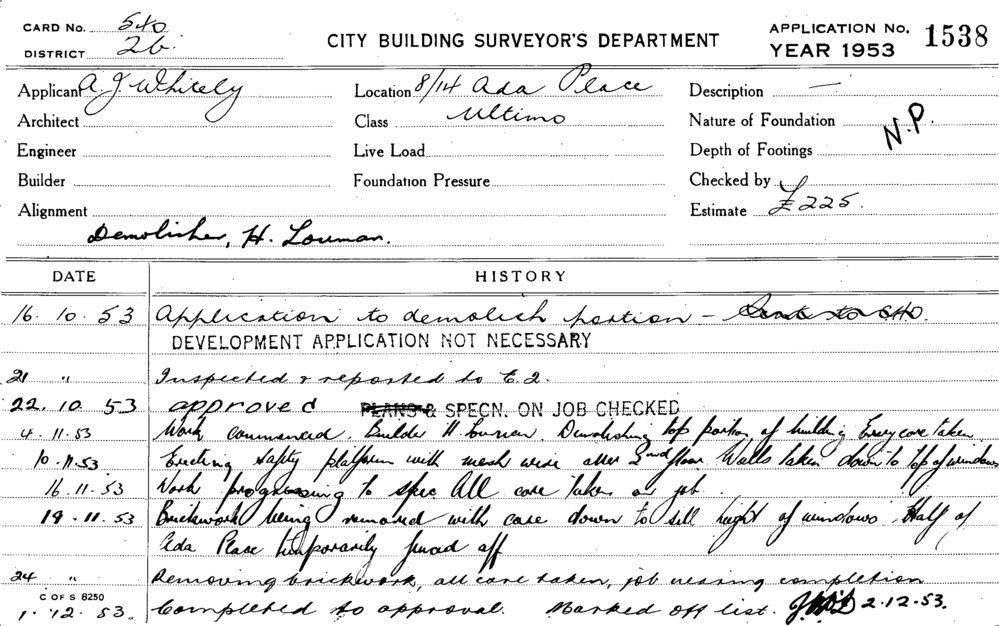 CARD No. 540
DISTRICT 2b.
CITY BUILDING SURVEYOR'S DEPARTMENT
APPLICATION No. 1538
YEAR 1953
Applicant A J Whitely
Location 8/14 Ada Place
Description —
Architect
Class Ultimo
Nature of Foundation N.P.
Engineer
Live Load
Depth of Footings
Builder
Foundation Pressure
Checked by
Alignment
Estimate £225.
Demolisher, H. Louman.
DATE HISTORY
16. 10. 53 Application to demolish portion —
DEVELOPMENT APPLICATION NOT NECESSARY
21 " Inspected & reported to E.2.
22. 10. 53 approved PLANS & SPECN. ON JOB CHECKED
4. 11. 53 Work commenced. Builder H. Demolishing top portion of building Every care taken
10. 11. 53. Erecting safty platform with mesh wire after 2nd floor Walls taken down to top of windows
16. 11. 53 Work progressing to spec All care taken on job.
19. 11. 53 Brickwork being removed with care down to sill height of windows. Half of
Ada Place temporarily fenced off
24 " Removing brickwork, all care taken, job nearing completion
C OF S 8250
1. 12. 53. Completed to approval. Marked off list. 2.12.53.